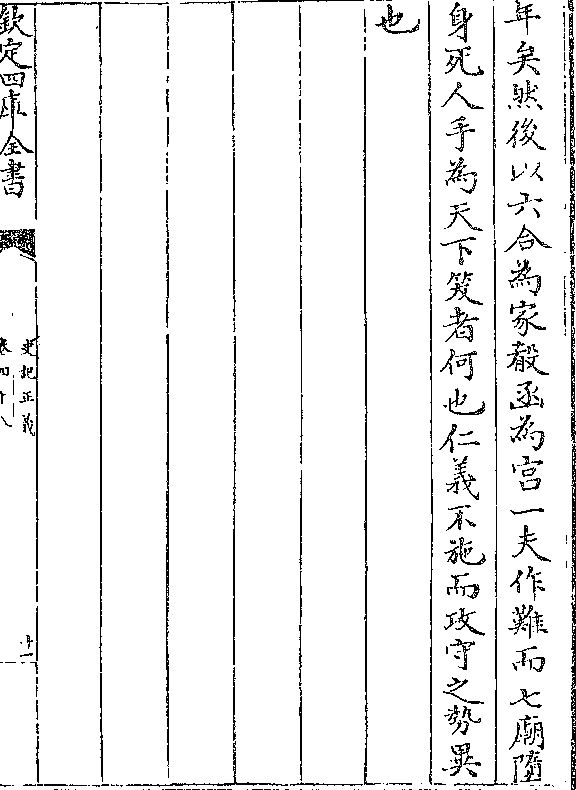 年矣然後以六合為家殽函為宫一夫作難而七廟隳
身死人手為天下笑者何也仁義不施而攻守之勢異
也
欽定四庫全書
史記正義
卷四十八
十一